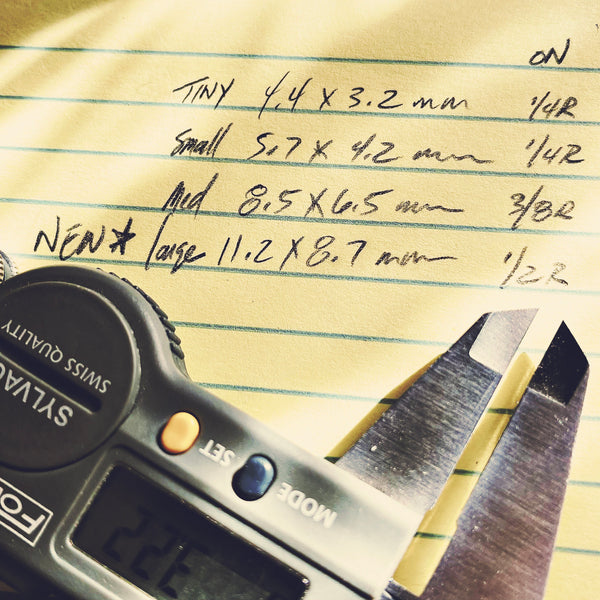 ON
TINY 4.4 X 3.2 mm 1/4R
Small 5.7 X 4.2 mm 1/4R
Med 8.5 X 6.5 mm 3/8R
NEW* large 11.2 X 8.7 mm 1/2R
SWISS QUALITY
SYLVAC
SET
MODE